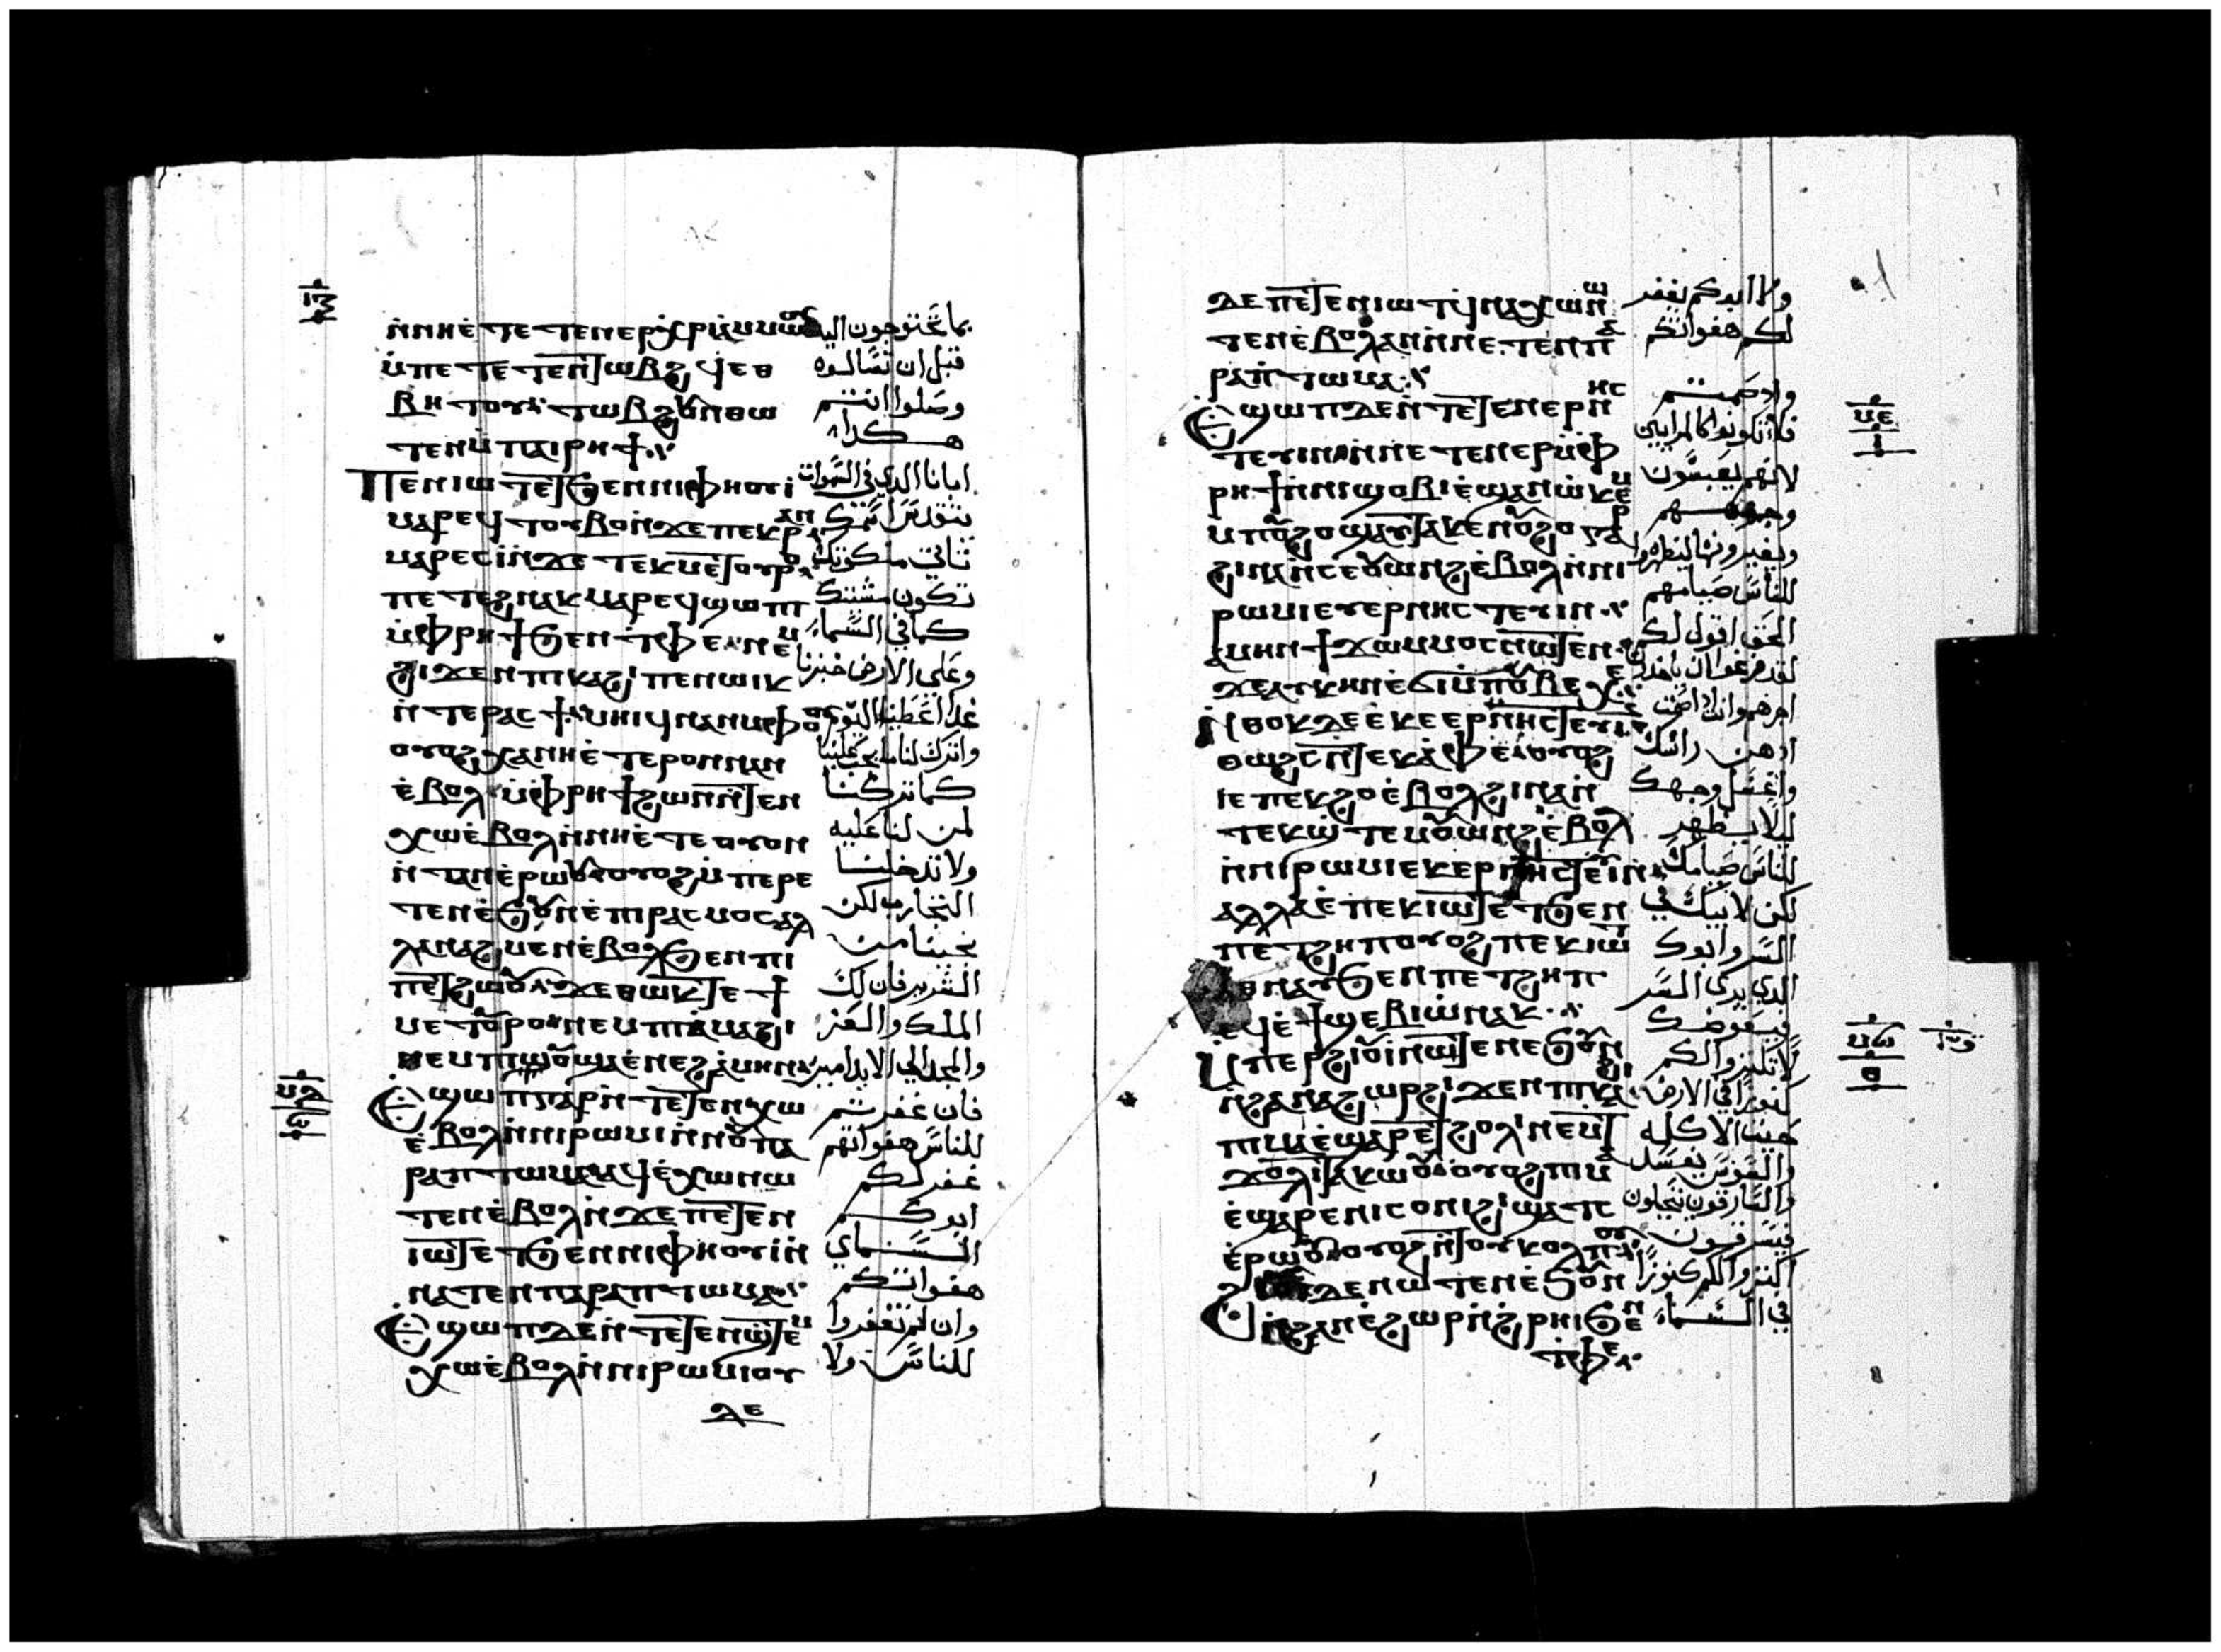 ⲛ̀ⲛⲏⲉ̀ ⲧⲉ ⲧⲉⲛⲉⲣⲭ̀ⲣⲓⲁ̀ⲙⲙⲱⲟⲩ
ⲙ̀ⲡⲉ ⲧⲉ ⲧⲉⲛⲧⲱⲃϩ ϥ ⲉⲑ
ⲃⲏ ⲧⲟⲩ ⲧⲱⲃϩ ⲛ̀ⲑⲱ
ⲧⲉⲛ ⲙ̀ⲡⲁⲓⲣⲏϯ
ⲡⲉⲛⲓⲱⲧ ⲉⲧϧⲉⲛⲛⲓⲫⲏⲟⲩⲓ̀
ⲙⲁⲣⲉϥ ⲧⲟⲩⲃⲟ ⲛ̀ϫⲉ ⲡⲉⲕⲣⲁⲛ
ⲙⲁⲣⲉⲥⲓ̀ ⲛ̀ϫⲉ ⲧⲉⲕⲙⲉⲧⲟⲩⲣⲟ
ⲡⲉ ⲧⲉϩⲛⲁⲕ ⲙⲁⲣⲉϥϣⲱⲡⲓ
ⲙ̀ⲫⲣⲏϯ ϧⲉⲛ ⲧⲫⲉ ⲛⲉⲙ
ϩⲓϫⲉⲛ ⲡⲓⲕⲁϩⲓ ⲡⲉⲛⲱⲓⲕ
ⲛ̀ ⲧⲉ ⲣⲁⲥϯ ⲙⲏⲓϥ ⲛⲁⲛ ⲙ̀ⲫⲟⲟⲩ
ⲟⲩⲟϩ ⲭⲁ ⲛⲏⲉ̀ ⲧⲉⲣⲟⲛ ⲛⲁⲛ
ⲉ̀ⲃⲟⲗ ⲙ̀ⲫⲣⲏϯ ϩⲱⲛ ⲛ̀ⲧⲉⲛ
ⲭⲱ ⲉ̀ⲃⲟⲗ ⲛ̀ⲛⲏⲉ̀ ⲧⲉ ⲟⲩⲟⲛ
ⲛ̀ ⲧⲁⲛ ⲉ̀ⲣⲱⲟⲩ ⲟⲩⲟϩ ⲙ̀ⲡⲉⲣⲉ
ⲧⲉⲛ ⲉ̀ϧⲟⲩⲛ ⲉ̀ ⲡⲓⲣⲁⲥⲙⲟⲥ ⲁⲗ
ⲗⲁ ⲛⲁϩⲙⲉⲛ ⲉ̀ⲃⲟⲗ ϧⲉⲛ ⲡⲓ
ⲡⲉⲧϩⲱⲟⲩ ϫⲉ ⲑⲱⲕ ⲧⲉ ϯ
ⲙⲉ ⲧⲟⲩⲣⲟ ⲛⲉⲙ ⲡⲓⲁ̀ⲙⲁϩⲓ
ⲛⲉⲙ ⲡⲓⲱ̀ⲟⲩ ϣⲁ ⲉ̀ⲛⲉϩ ⲁ̀ⲙⲏⲛ
ⲉϣⲱⲡ ⲅⲁⲣ ⲛ̀ ⲧⲉⲧⲉⲛⲭⲱ
ⲉ̀ⲃⲟⲗ ⲛ̀ⲛⲓⲣⲱⲙⲓ ⲛ̀ⲛⲟⲩⲡⲁ
ⲣⲁⲡ ⲧⲱⲙⲁ ϥⲉ̀ⲭⲱ ⲛⲱ
ⲧⲉⲛ ⲉ̀ⲃⲟⲗ ⲛ̀ϫⲉ ⲡⲉⲧⲉⲛ
ⲓⲱⲧ ⲉ ⲧϧⲉⲛ ⲛⲓⲫⲏⲟⲩⲓ̀ ⲛ̀
ⲛⲉ ⲧⲉⲛ ⲡⲁⲣⲁⲡ ⲧⲱⲙⲁ
ⲉϣⲱⲡ ⲇⲉ ⲛ̀ ⲧⲉⲧⲉⲛϣⲧⲉⲙ
ⲭⲱ ⲉ̀ⲃⲟⲗ ⲛ̀ⲛⲓⲣⲱⲙⲓ ⲟⲩ
ⲇⲉ
بما تحتوجون اليه
قبل ان تسالوه
وصلوا انتم
هكدا
ابانا الدي في السموات
يتقدس اسمك
تاتي ملكوتك
تكون مشيتك
كما في السماء
وعلى الارض خبزنا
غدا اعطينا اليوم
واترك لنا ما يجب علينا
كما تركنا
لمن لنا عليه
ولا تدخلنا
التجارب لكن
نجينا من
الشرير فان لك
الملك والعز
والمجد الي الابد امين
فان غفرتم
للناس هفواتهم
غفر لكم
ابوكم
السماي
هفواتكم
وان لم تغفروا
للناس ولا
ⲇⲉ ⲡⲉⲧⲉⲛⲓⲱⲧ ϥⲛⲁⲭⲱ ⲛⲱ
ⲧⲉⲛ ⲉ̀ⲃⲟⲗ ⲁⲛ ⲛ̀ⲛⲉ ⲧⲉⲛⲡⲁ
ⲣⲁⲡ ⲧⲱⲙⲁ
ⲉϣⲱⲡ ⲇⲉ ⲛ̀ ⲧⲉⲧⲉⲛⲉⲣⲛⲏⲥ
ⲧⲉⲩⲓⲛ ⲛ̀ⲛⲉ ⲧⲉⲛⲉⲣ ⲙ̀ⲫ
ⲣⲏϯ ⲛ̀ⲛⲓϣⲟⲃⲓ ⲉ̀ϣⲁⲩⲱ̀ⲕⲉⲙ
ⲙ̀ⲡⲟⲩϩⲟ ϣⲁⲩⲧⲁⲕⲉ ⲛⲟⲩϩⲟ ⲅⲁⲣ
ϩⲓⲛⲁ ⲛ̀ⲥⲉⲟⲩⲱⲛϩ ⲉ̀ⲃⲟⲗ ⲛ̀ⲛⲓ
ⲣⲱⲙⲓ ⲉⲩⲉⲣⲛⲏⲥ ⲧⲉⲩⲓⲛ
ⲁⲙⲏⲛ ϯϫⲱ ⲙⲙⲟⲥ ⲛⲱⲧⲉⲛ
ϫⲉ ⲁⲩⲕⲏⲛ ⲉ̀ϭⲓ ⲙ̀ⲡⲟⲩⲃⲉⲭⲉ
ⲛ̀ⲑⲟⲕ ⲇⲉ ⲉⲕⲉⲣⲛⲏⲥⲧⲉⲩⲓⲛ
ⲑⲱϩⲥ ⲛ̀ⲧⲉⲕⲁ̀ⲫⲉ ⲟⲩⲟϩ
ⲓⲉ ⲡⲉⲕϩⲟ ⲉ̀ⲃⲟⲗ ϩⲓⲛⲁ ⲛ̀
ⲧⲉⲕϣ̀ ⲧⲉⲙⲟⲩⲱⲛϩ ⲉ̀ⲃⲟⲗ
ⲛ̀ⲛⲓⲣⲱⲙⲓ ⲉⲕⲉⲣⲛⲏⲥⲧⲉⲩⲓⲛ
ⲁⲗⲗⲁ ⲉ̀ ⲡⲉⲕⲓⲱⲧ ⲉ ⲧϧⲉⲛ
ⲡⲉ ⲧϩⲏⲡ ⲟⲩⲟϩ ⲡⲉⲕⲓⲱⲧ
ⲉⲑⲛⲁⲩ ϧⲉⲛ ⲡⲉ ⲧϩⲏⲡ
ⲉϥⲉ̀ϯϣⲉⲃⲓⲱ̀ ⲛⲁⲕ
ⲙ̀ⲡⲉⲣϩⲓⲟⲩⲓ̀ ⲛⲱⲧⲉⲛ ⲉϧⲟⲩⲛ
ⲛ̀ϩⲁⲛⲁϩⲱⲣ ϩⲓϫⲉⲛ ⲡⲓⲕⲁϩⲓ
ⲡⲓⲙⲁ ⲉ̀ϣⲁⲣⲉ ⲧϩⲟⲗⲓ ⲛⲉⲙ
ϯϫⲟⲗⲓ ⲧⲁⲕⲱⲟⲩ ⲟⲩⲟϩ ⲡⲓⲙⲁ
ⲉ̀ϣⲁⲣⲉ ⲛⲓⲥⲟⲛⲓ ϩⲓϣⲁⲧⲥ
ⲉ̀ⲣⲱⲟⲩ ⲟⲩⲟϩ ⲛ̀ⲧⲟⲩⲕⲟⲗⲡⲟⲩ
ⲇⲉ ⲛⲱ ⲧⲉⲛ ⲉ̀ϧⲟⲩⲛ
ⲛ̀ϩⲁⲛⲉ̀ϩⲱⲣ ⲛ̀ϩⲣⲏⲓ ϧⲉⲛ
ⲧⲫⲉ
ولا ابوكم يغفر
لكم هفواتكم
وادا صمتم
فلا تكونوا كالمرايين
لانهم يعبسون
وجوههم
ويغيرونها ليظهروا
للناس صيامهم
الحق اقول لكم
لقد فرغوا ان ياخدوا
اجرهم وانت ادا صمت
ادهن راسك
واغسل وجهك
ليلا يظهر
للناس صيامك
لكن لابيك في
السر وابوك
الدي يرى السر
يعوضك
لا تكنزوا لكم
كنوزا في الارض
حيث الاكله
والسوس يفسد
والسارقون يتحيلون
فيسرقون
اكنزوا لكم كنوزا
في السماء
ⲙⲉ
ⲙⲋ